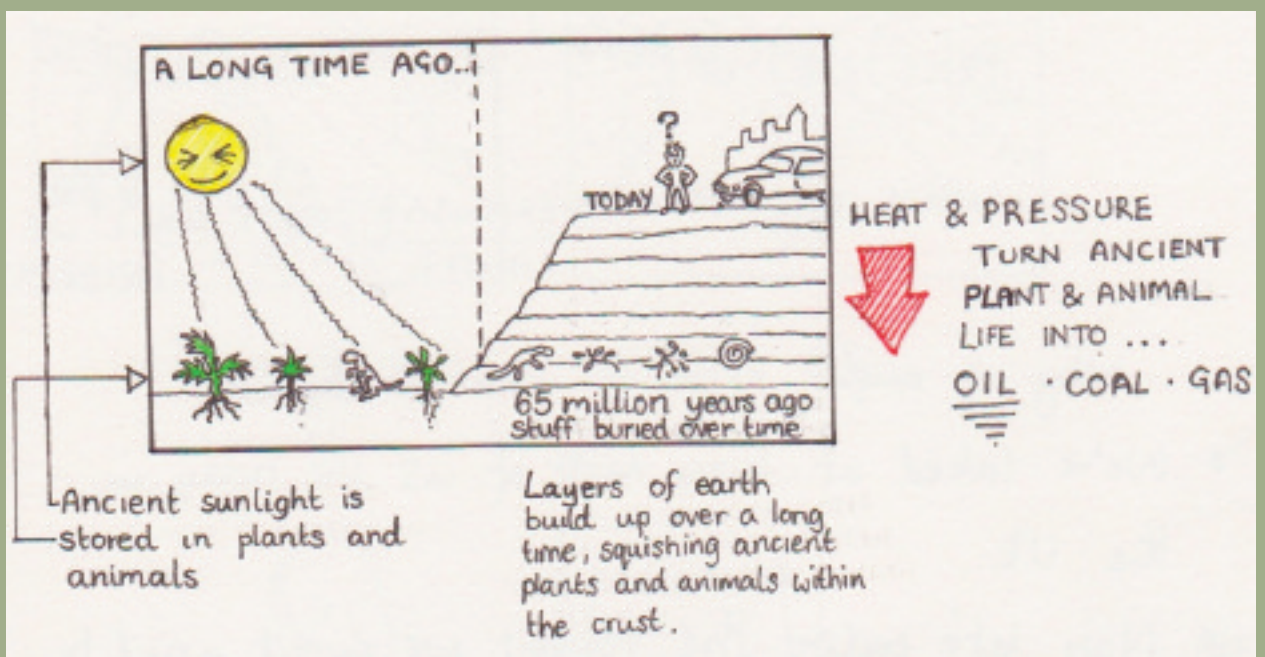 A LONG TIME AGO...
?
TODAY
65 million years ago
stuff buried over time
HEAT & PRESSURE
TURN ANCIENT
PLANT & ANIMAL
LIFE INTO ...
OIL · COAL · GAS
Ancient sunlight is
stored in plants and
animals
Layers of earth
build up over a long
time, squishing ancient
plants and animals within
the crust.